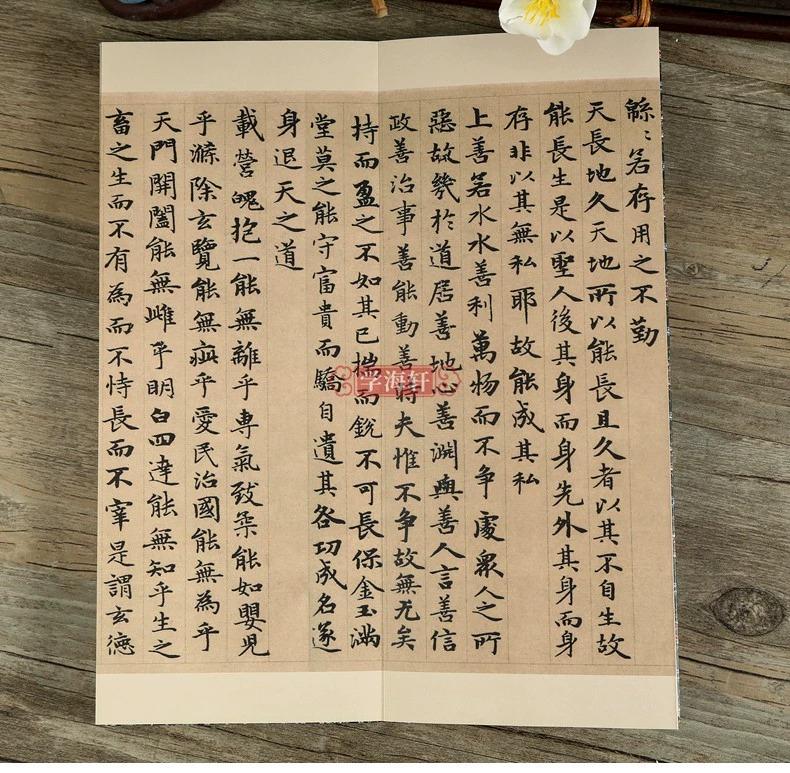 緜〻若存用之不勤
天長地久天地所以能長且久者以其不自生故
能長生是以聖人後其身而身先外其身而身
存非以其無私耶故能成其私
上善若水水善利萬物而不争處衆人之所
惡故幾於道居善地心善淵與善人言善信
政善治事善能動善時夫惟不争故無尤矣
持而盈之不如其已揣而銳不可長保金玉滿
堂莫之能守富貴而驕自遺其咎功成名遂
身退天之道
載營魄抱一能無離乎専氣致柔能如嬰兒
乎滌除玄覽能無疵乎愛民治國能無為乎
天門開闔能無雌乎明白四達能無知乎生之
畜之生而不有為而不恃長而不宰是謂玄德
学海轩